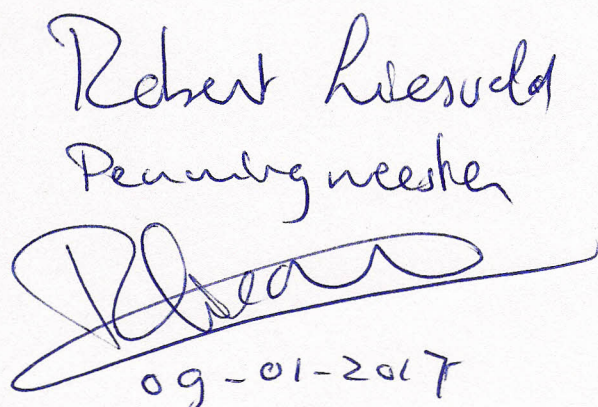 Robert Liesveld
Penningmeester
09-01-2017